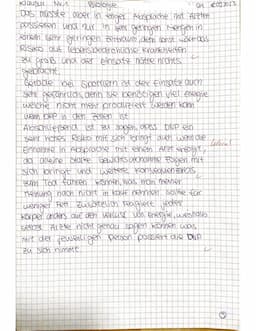 Klausur Nr.1 Biologie
Das müsste aber in enger Absprache mit Ärzten
passieren und nur in sehr geringen Mengen in
einem sehr geringen Zeitraum, denn sonst wäre das
Risiko auf lebensbedrohliche Krankheiten
zu groß und der Einsatz hätte nichts
gebracht.
Gerade bei Sportlern ist der Einsatz auch
sehr gefährlich, denn sie benötigen viel Energie
welche nicht mehr produziert werden kann
wenn DNP in den Zellen ist.
Abschließend ist zu sagen, dass DNP ein
sehr hohes Risiko mit sich bringt auch wenn die
Einnahme in Absprache mit einem Arzt erfolgt,
da eine starke Gewichtsabnahme Folgen mit
sich bringt und weitere Konsequenzen bis
zum Tod führen können, was man meiner
Meinung nach nicht in Kauf nehmen sollte für
weniger Fett. Zusätzlich reagiert jeder
Körper anders auf den Verlust von Energie, weshalb
selbst Ärzte nicht genau sagen können was
mit der jeweiligen Person passiert die DNP
zu sich nimmt.